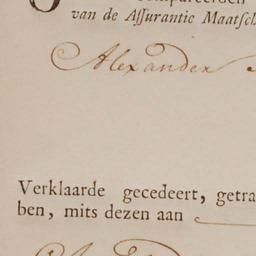 van de Aſſurantie Maatſch
Alexander
Verklaarde gecedeert, getra
ben, mits dezen aan